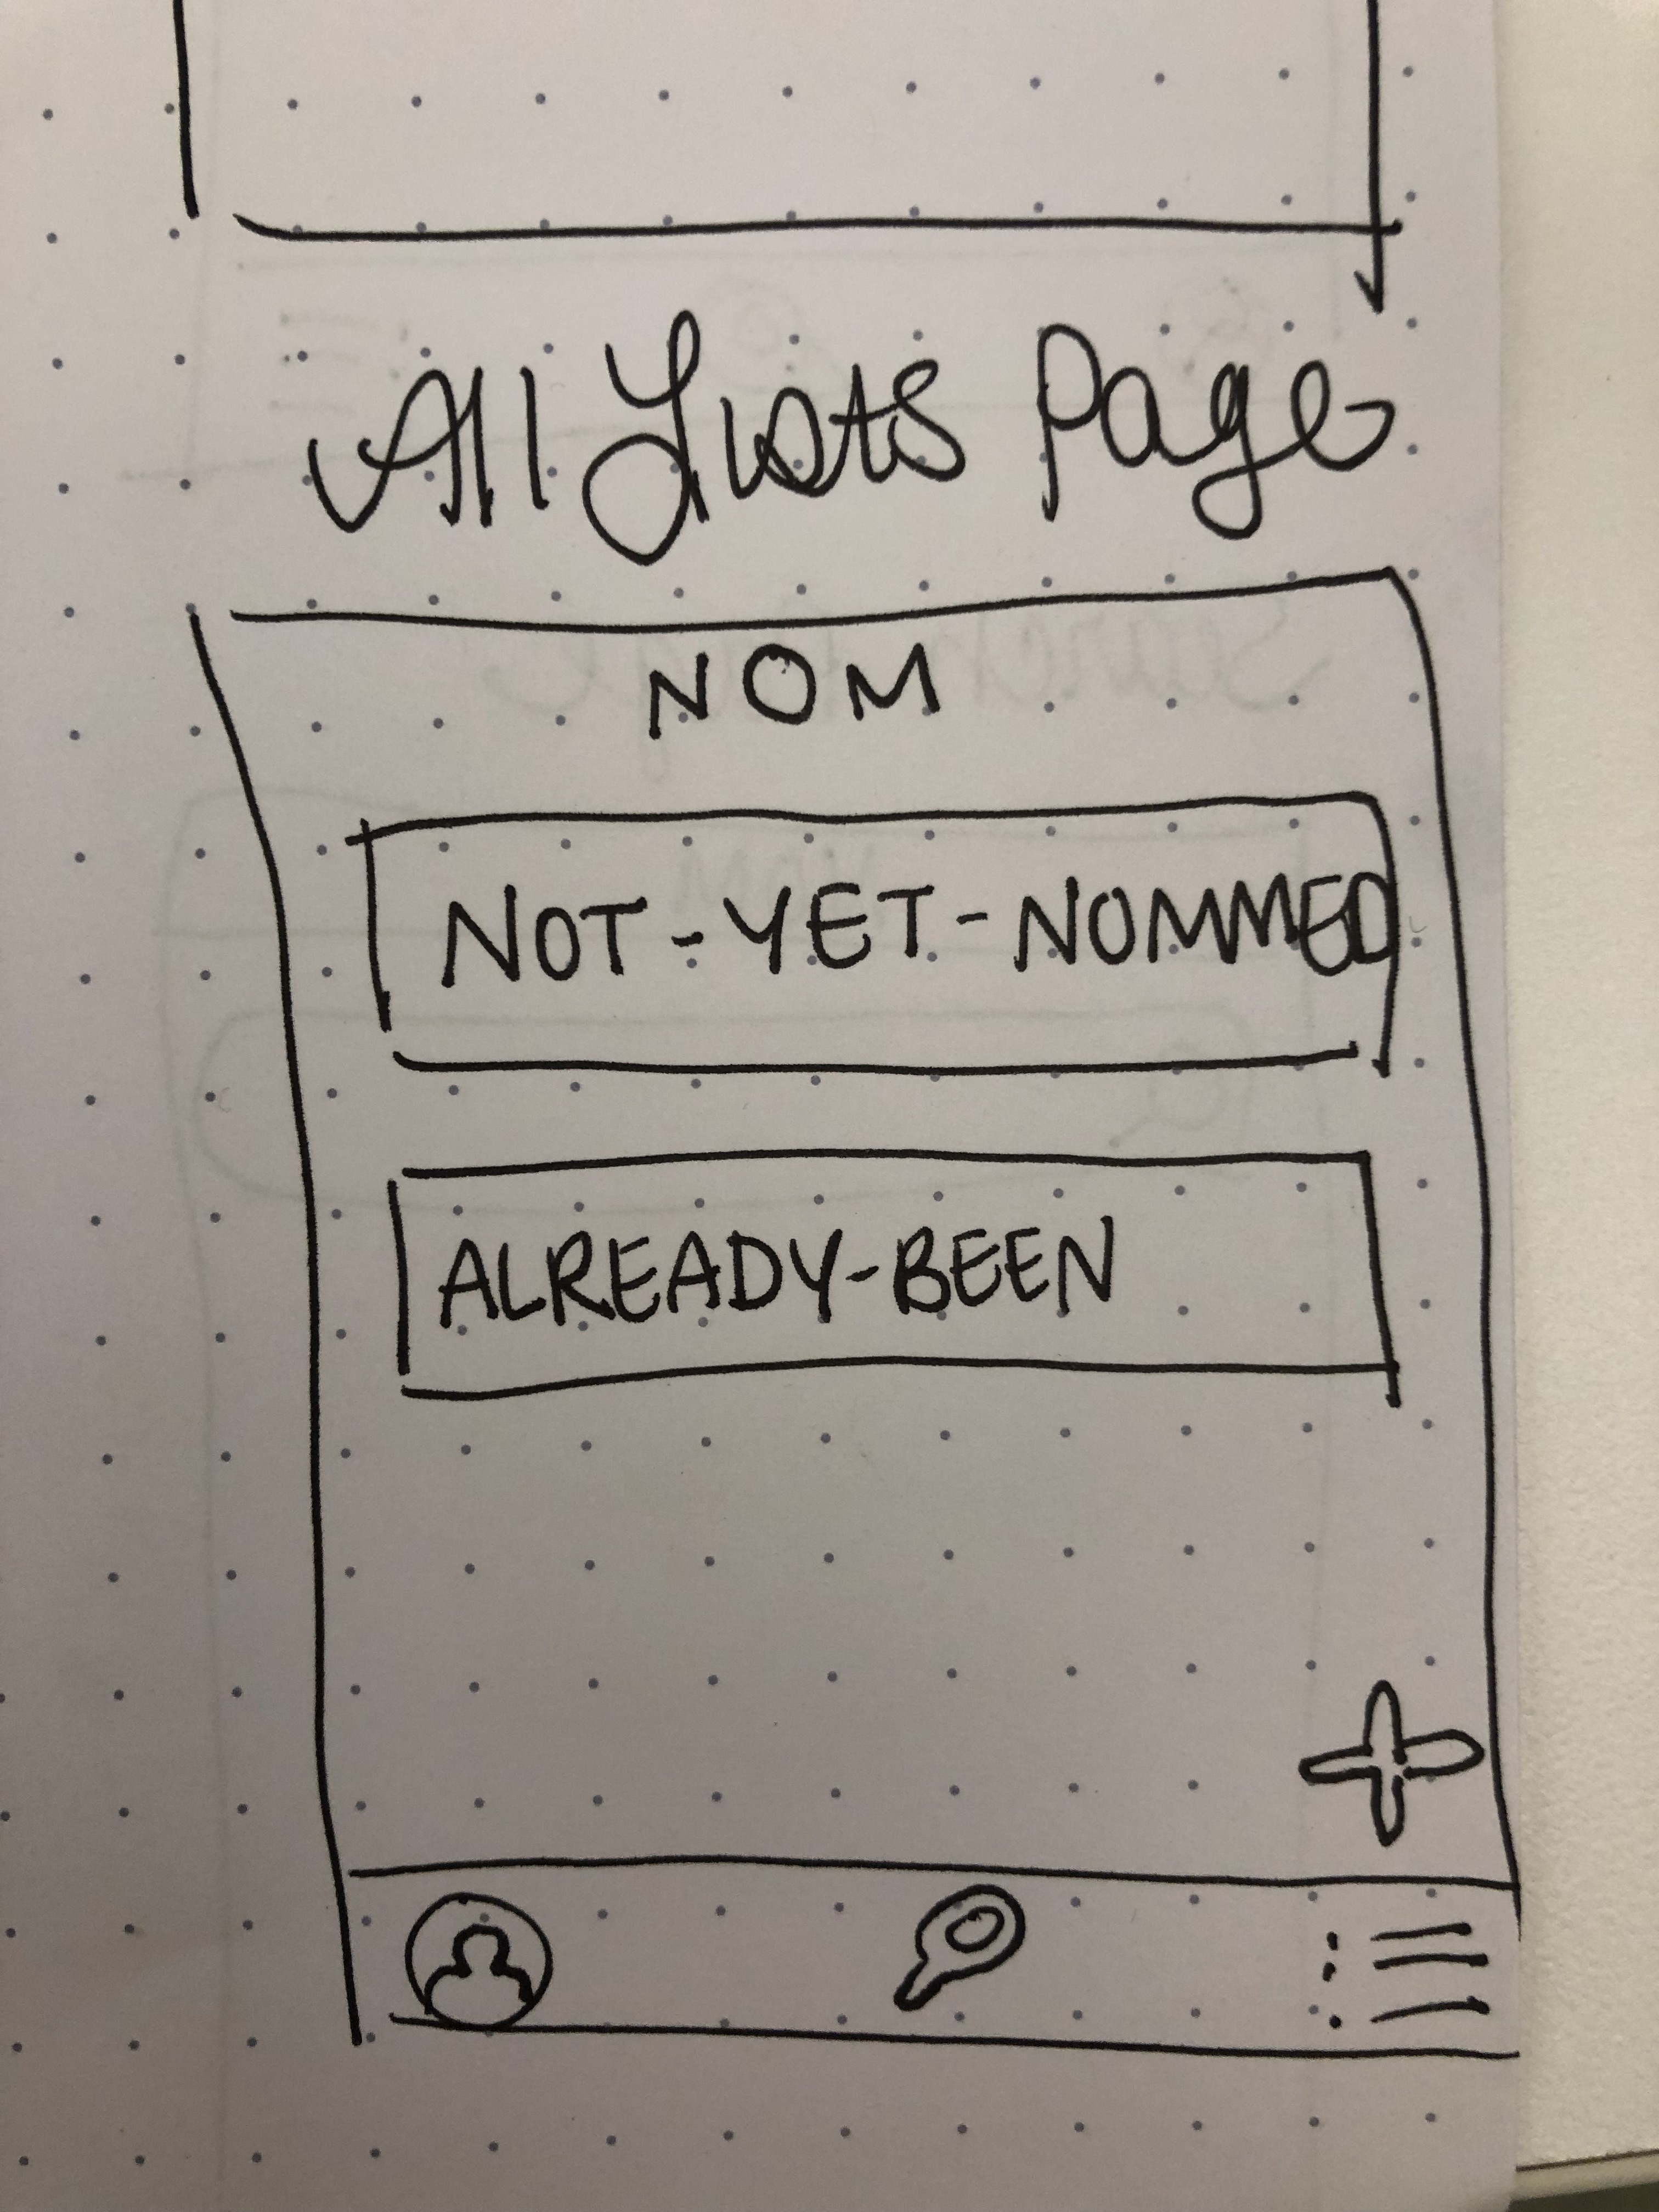 All Lists Page
NOM
NOT-YET-NOMMED
ALREADY-BEEN